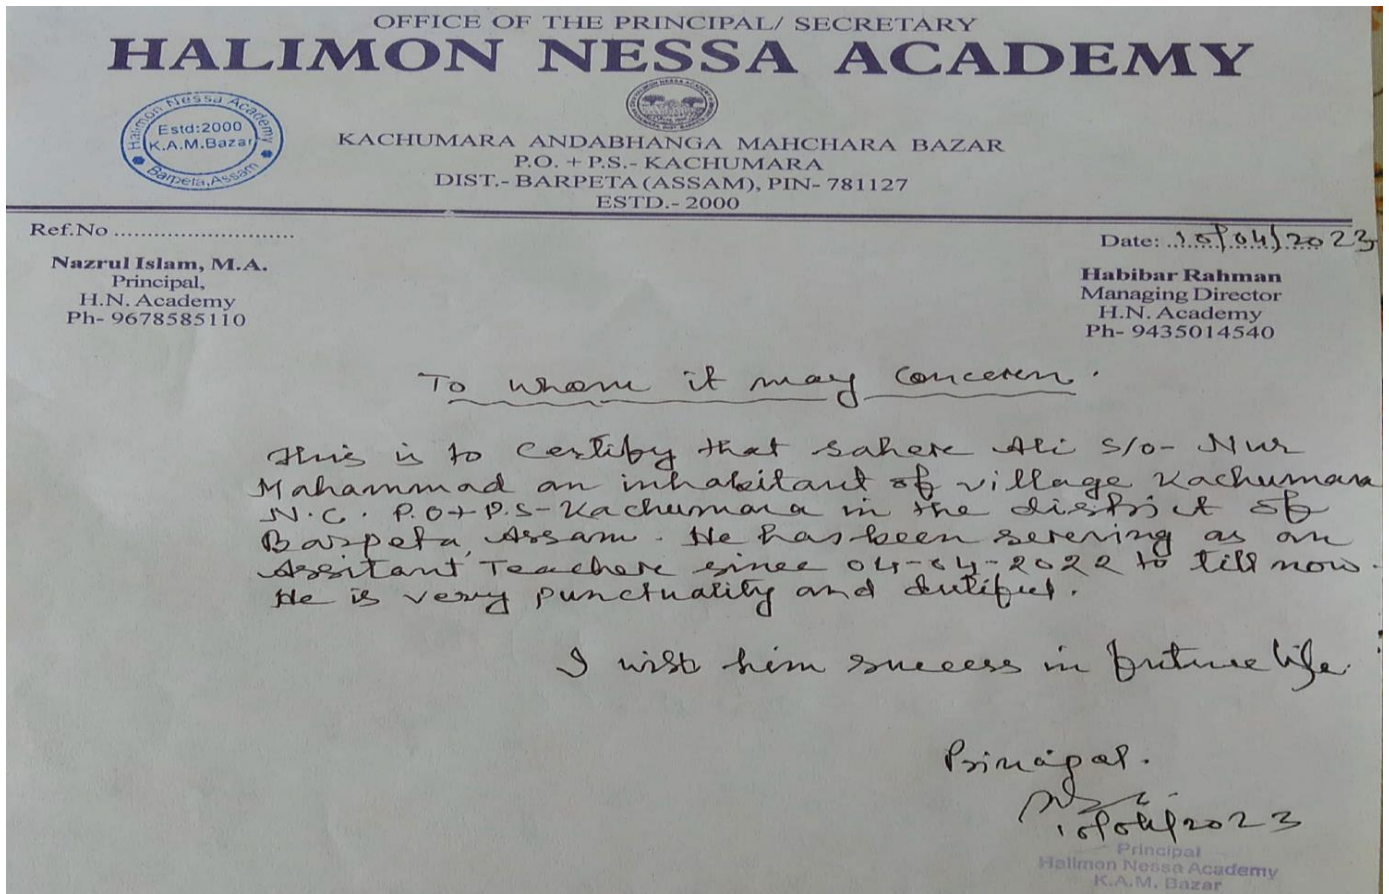 OFFICE OF THE PRINCIPAL/ SECRETARY
HALIMON NESSA ACADEMY
Halimon Nessa Academy
Estd:2000
K.A.M.Bazar
Barpeta, Assam
KACHUMARA ANDABHANGA MAHCHARA BAZAR
P.O. + P.S.- KACHUMARA
DIST.- BARPETA (ASSAM), PIN- 781127
ESTD.- 2000
Ref.No ...........................
Date: 10/04/2023
Nazrul Islam, M.A.
Principal,
H.N. Academy
Ph- 9678585110
Habibar Rahman
Managing Director
H.N. Academy
Ph- 9435014540
To whom it may concern.
This is to certify that Saher Ali S/o- Nur
Mahammad an inhabitant of village Kachumara
N.C. P.O+P.S-Kachumara in the district of
Barpeta, Assam. He has been serving as an
Assitant Teacher since 04-04-2022 to till now.
He is very punctuality and dutiful.
I wish him success in future life.
Principal.
10/04/2023
Principal
Halimon Nessa Academy
K.A.M. Bazar